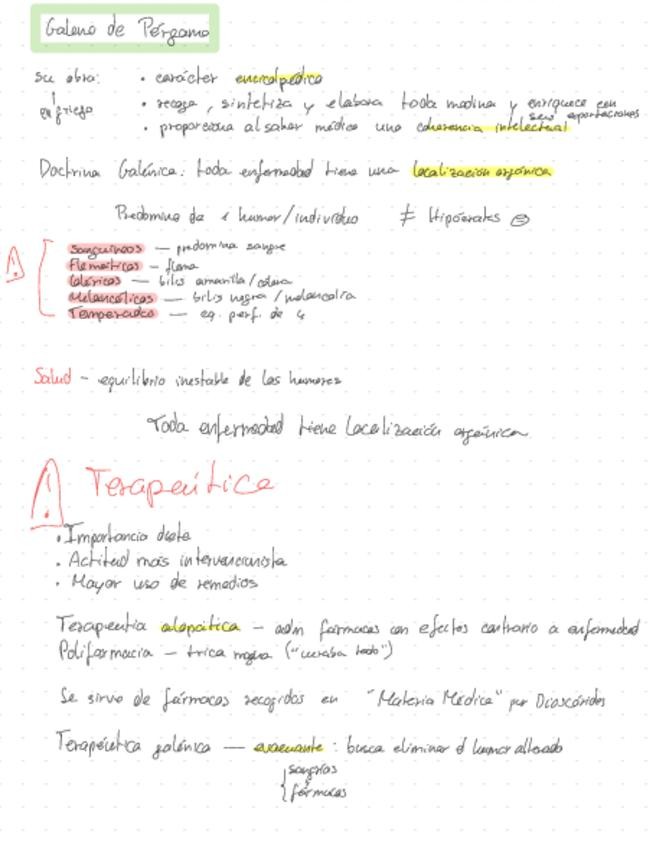 Galeno de Pérgamo
su obra: • carácter enciclopédico
en griego • recoge, sintetiza y elabora toda medina y enriquece con sus aportaciones
• proporciona al saber médico una coherencia intelectual
Doctrina Galénica: toda enfermedad tiene una localización orgánica
Predomina de 1 humor/individuo ≠ Hipócrates
! Sanguíneos — predomina sangre
Flemáticos – flema
Coléricos — bilis amarilla/cólera
Melancólicos — bilis negra/melancolía
Temperado — eq. perf. de 4
Salud – equilibrio inestable de los humores
Toda enfermedad tiene localización orgánica
! Terapeútica
• Importancia dieta
• Actitud más intervencionista
• Mayor uso de remedios
Terapeutia alopática – adm fármacos con efectos contrario a enfermedad
Polifarmacia – trica magna ("curaba todo")
Se sirve de fármacos recogidos en "Materia Médica" por Dioscórides
Terapéutica galénica — evacuante: busca eliminar el humor alterado
sangrías
fármacos